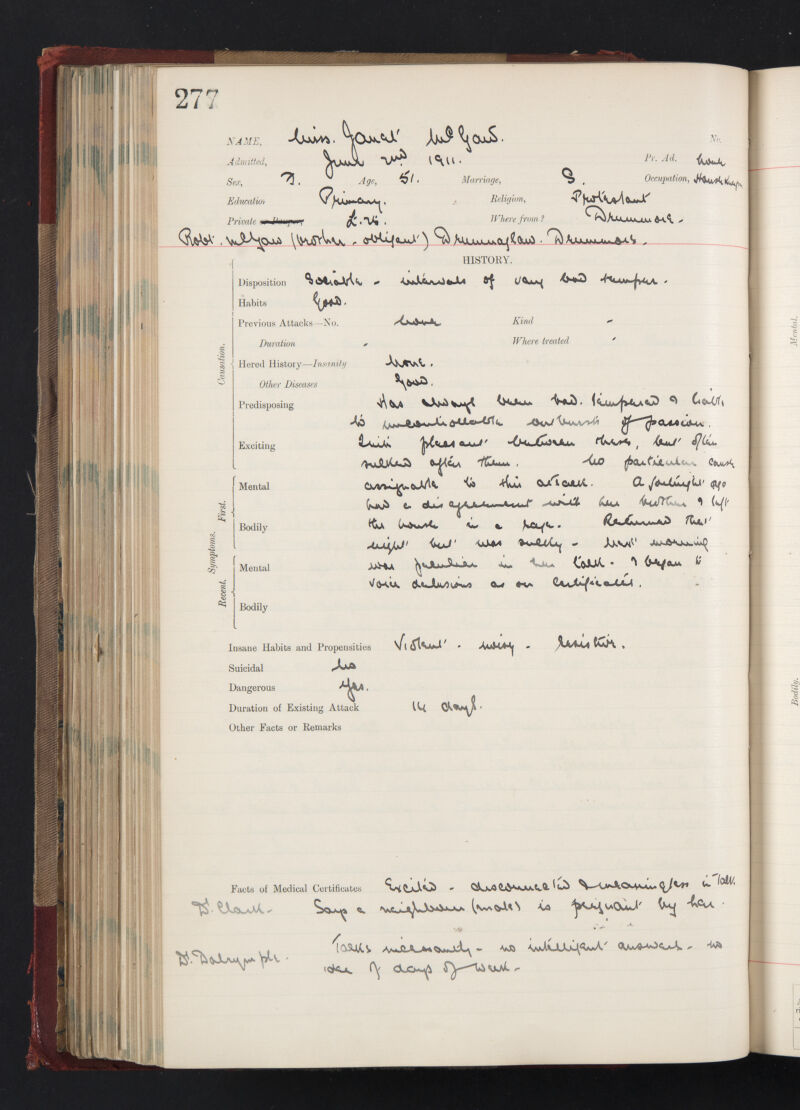 277
NAME, Miss. Janet McGaw. No.
Admitted, June 2nd 1911. Pr. Ad. none
Sex, F. Age, 51. Marriage, S. Occupation, Housekeeper
Education Primary. Religion, Protestant
Private £. Where from? Drummore.
Robt. McGaw (brother - obligant) Drummore.
HISTORY.
Disposition Sociable - intervals of very bad temper.
Habits Good.
Previous Attacks—No. None Kind -
Duration - Where treated -
Hered History—Insanity None.
Other Diseases Good.
Causation.
Predisposing Has always been bad. tempered & liable
to uncontrollable outbursts of passion.
Exciting Quite pleasant between these, but often
sulked after them. No particular cause
Mental assignable to this attack. A fortnight ago
had a disagreement with her brother & left
Bodily the house in a rage. Returned that
night but was sulky - next morning
Mental was peculiar in her talk - & began to
voice delusions as on Certificates.
Bodily
First.
Recent.
Symptoms.
Insane Habits and Propensities Violent - noisy - resistive.
Suicidal No
Dangerous Yes.
Duration of Existing Attack 14 days.
Other Facts or Remarks
Facts of Medical Certificates Excited - disconnected & meaningless in talk.
Dr. Clark - Says a neighbour (male) is pregnant by her.
Dr. Dalrymple. Talks incessantly - no intelligent answers - no
idea of days of week -
Mental.
Bodily.